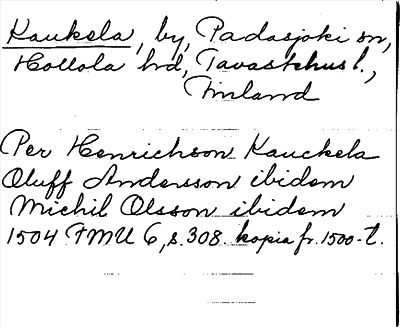 Kaukela, by, Padasjoki sn,
Hollola hd, Tavastehus l.,
Finland
Per Henrichson Kauckela
Oluff Andersson ibidem
Michil Olsson ibidem
1504 FMU 6, s. 308. kopia fr. 1500-t.